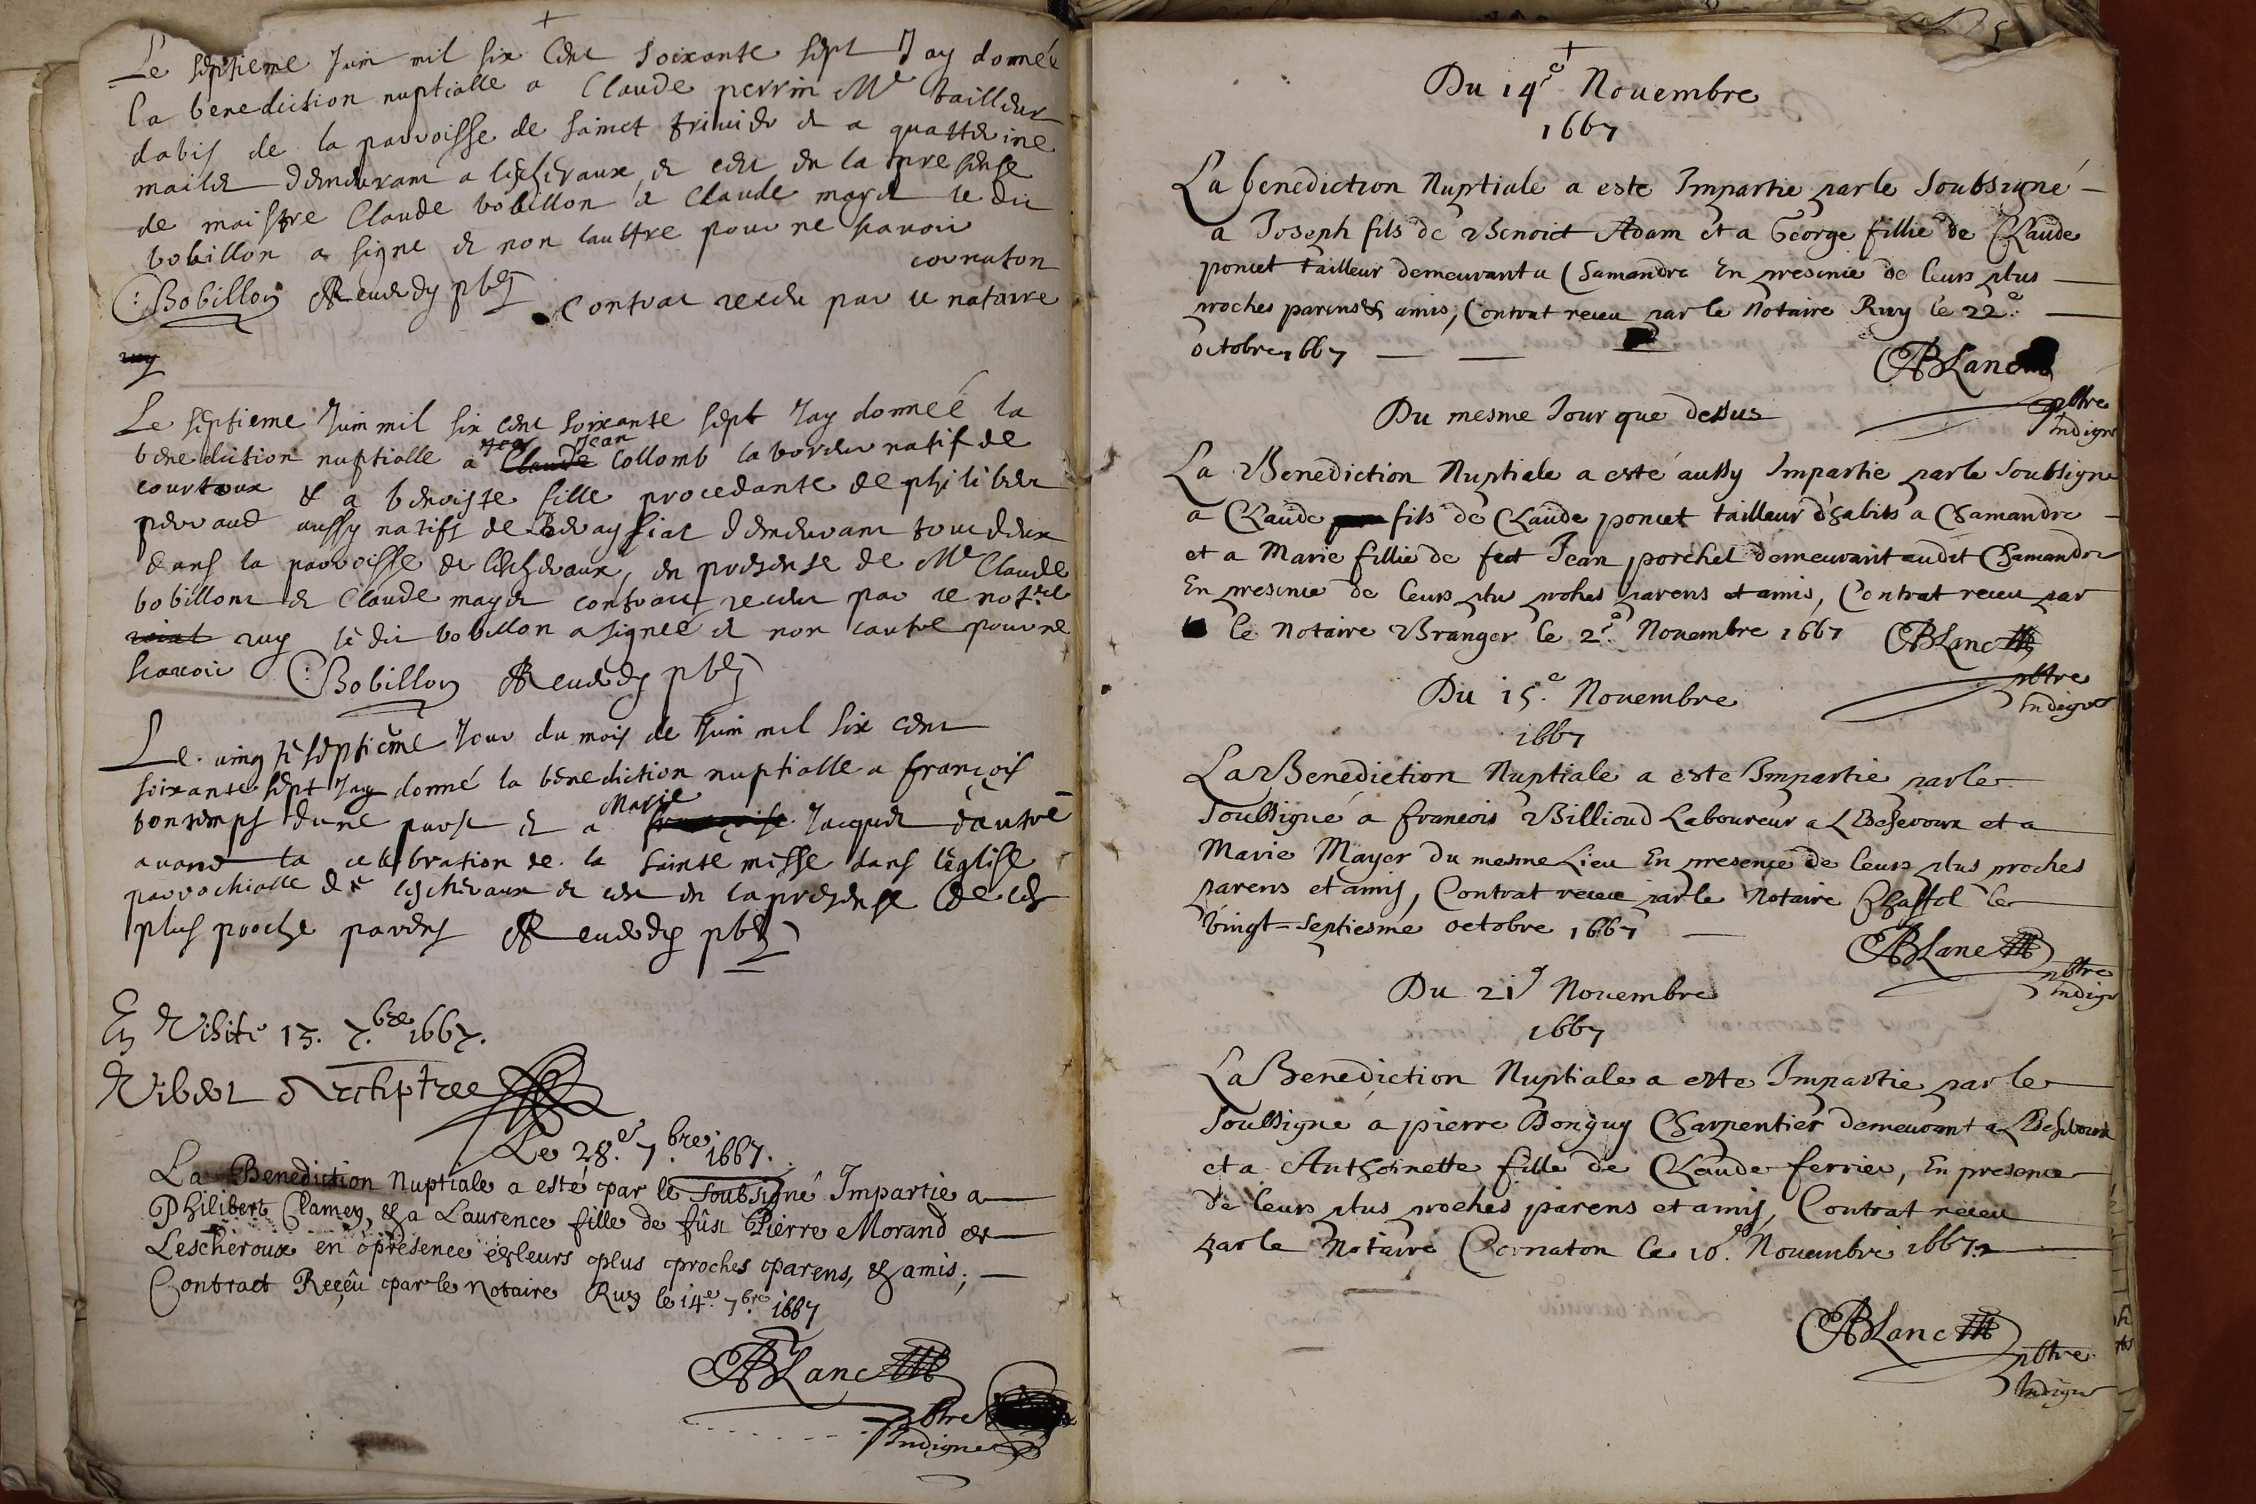 Le septieme Juin mil six cent soixante sept J ay donnée
la benediction nuptialle a Claude perrin Me tailleur
dabis de la parroisse de sainct trivier et a quatterine
maitre demeurant a lescheraux et cett en la presense
de maistre Claude bobillon et Claude mayet le dit
bobillon a signe et non lauttre pour ne scavoir
cornaton
C: Bobillon Reuerdy pbr Contrat receu par le notaire
ruy
Le septieme Juin mil six cent soixante sept Jay donneé la
benediction nuptialle a Claude Jean Collomb laboreur natif de
courtoux & a benoiste fille procedante de philiber
peraud aussy natifs de demeurant tout deux
dans la parroisse de lescheraux, en presense de Me Claude
bobillont et Claude mayet contract receu par le notre
ruy le dit bobillon a signeé et non lautre pour ne
scavoir C: Bobillon Reuerdy pbr
Le vingt & septiéme Jour du mois de Juin mil six cent
soixante sept Jay donné la benediction nuptialle a françois
bontemps dune parst et a Marie Jacquet d'autre
auand la celebration de la sainte misse dans l'eglise
parrochialle de lescheraux et cett en la presense de les
plus proche parens Reuerdy pbr
En Visite 13. 7.bre 1667.
Vibert Archiptree
Le 28.e 7.bre 1667.
La Benediction Nuptiale a esté par le Soubsigné Impartie a
Philibert Clamey, & a Laurence fille de fûst Pierre Morand de
Lescheroux en présence de leurs plus proches parens, & amis;
Contract Reçêu par le Notaire Ruy le 14.e 7.bre 1667
ABLanc
pbtre
Indigne
Du 14.e Nouembre
1667
La benediction Nuptiale a este Impartie par le Soubsigné
a Joseph fils de Benoict Adam et a George fillie de Claude
poncet tailleur demeurant a Chamandre En presence de leurs plus
proches parens & amis, Contrat receu par le Notaire Ruy le 22.e
octobre 1667
ABLanc
pbtre
Indigne
Du mesme Jour que dessus
La Benediction Nuptiale a esté aussy Impartie par le Soubsigne
a Claude fils de Claude poncet tailleur d'habits a Chamandre
et a Marie fillie de feu Jean porchel demeurant audit Chamandre
En presence de leurs plus prohes parens et amis, Contrat receu par
le Notaire Branger le 2.e Nouembre 1667 ABLanc
pbtre
Indigne
Du 15.e Nouembre
1667
La Benediction Nuptiale a este Impartie par le
Soubsigné a francois Billioud Laboureur a LEscheroux et a
Marie Mayer du mesme Lieu En presence de leurs plus proches
parens et amis, Contrat receu par le Notaire Chastel le
Vingt=septiesme octobre 1667
ABLanc
pbtre
Indigne
Du 21e Nouembre
1667
La Benediction Nuptiale a este Impartie par le
Soubsigné a pierre Donguy Charpentier demeurant a LEscheroux
et a Anthoinette fille de Claude ferrier, En presence
de leurs plus proches parens et amis, Contrat receu
par le Notaire Cornaton le 10.e Nouembre 1667
ABLanc
pbtre
Indigne